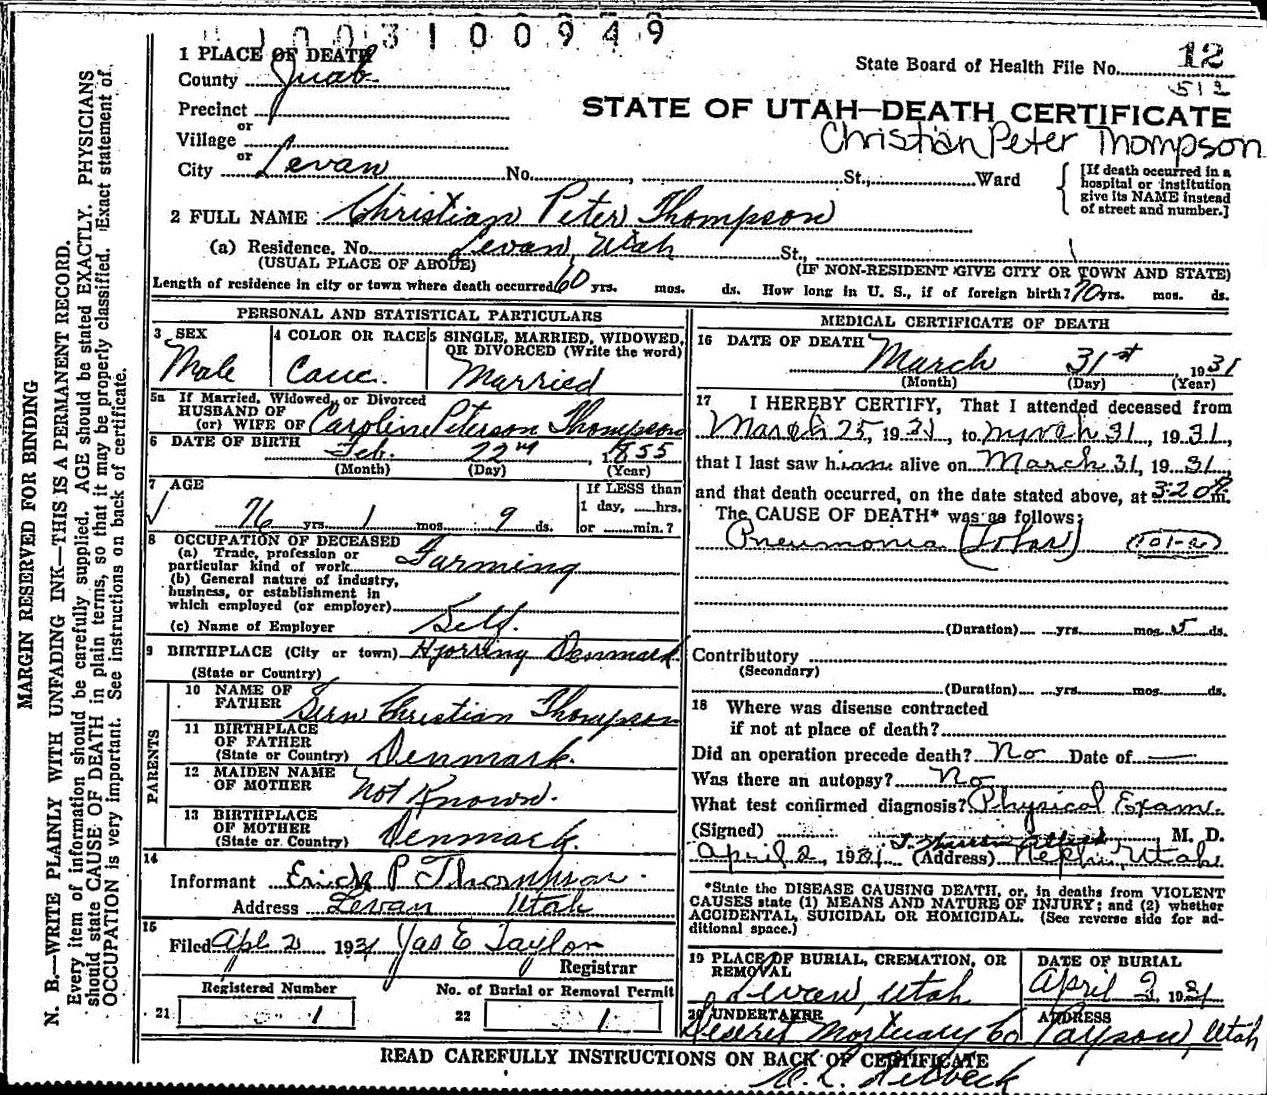 1003100949
1 PLACE OF DEATH
County Juab
State Board of Health File No. 12
512
Precinct
or
Village
STATE OF UTAH—DEATH CERTIFICATE
Christian Peter Thompson
or
City Levan No. , St., Ward
[If death occurred in a hospital or institution give its NAME instead of street and number.]
2 FULL NAME Christian Peter Thompson
(a) Residence. No. Levan, Utah St.,
(USUAL PLACE OF ABODE) (IF NON-RESIDENT GIVE CITY OR TOWN AND STATE)
Length of residence in city or town where death occurred 60 yrs. mos. ds. How long in U. S., if of foreign birth? 70 yrs. mos. ds.
PERSONAL AND STATISTICAL PARTICULARS
3 SEX Male
4 COLOR OR RACE Cauc.
5 SINGLE, MARRIED, WIDOWED, OR DIVORCED (Write the word) Married
5a If Married, Widowed, or Divorced
HUSBAND OF
(or) WIFE OF Caroline Peterson Thompson
6 DATE OF BIRTH Feb. 22nd, 1855
(Month) (Day) (Year)
7 AGE
76 yrs. 1 mos. 9 ds.
If LESS than 1 day, hrs. or min.?
8 OCCUPATION OF DECEASED
(a) Trade, profession or particular kind of work Farming
(b) General nature of industry, business, or establishment in which employed (or employer)
(c) Name of Employer Self.
9 BIRTHPLACE (City or town) Hjorring Denmark
(State or Country)
PARENTS
10 NAME OF FATHER Sern Christian Thompson
11 BIRTHPLACE OF FATHER (State or Country) Denmark.
12 MAIDEN NAME OF MOTHER Not Known.
13 BIRTHPLACE OF MOTHER (State or Country) Denmark.
14
Informant Erick P Thompson
Address Levan Utah
15
Filed Apl 2 1931 Jas E Taylor
Registrar
Registered Number No. of Burial or Removal Permit
21 1 22 1
MEDICAL CERTIFICATE OF DEATH
16 DATE OF DEATH March 31st, 1931
(Month) (Day) (Year)
17 I HEREBY CERTIFY, That I attended deceased from
March 25, 1931, to March 31, 1931,
that I last saw him alive on March 31, 1931,
and that death occurred, on the date stated above, at 3:20 P m.
The CAUSE OF DEATH* was as follows:
Pneumonia (Lobar) (101-a)
(Duration) yrs. mos. 5 ds.
Contributory
(Secondary)
(Duration) yrs. mos. ds.
18 Where was disease contracted
if not at place of death?
Did an operation precede death? No Date of —
Was there an autopsy? No
What test confirmed diagnosis? Physical Exam.
(Signed) M. D.
April 2, 1931 (Address) Nephi, Utah
*State the DISEASE CAUSING DEATH, or, in deaths from VIOLENT
CAUSES state (1) MEANS AND NATURE OF INJURY; and (2) whether
ACCIDENTAL, SUICIDAL OR HOMICIDAL. (See reverse side for additional space.)
19 PLACE OF BURIAL, CREMATION, OR REMOVAL Levan, Utah
DATE OF BURIAL April 2, 1931
20 UNDERTAKER Deseret Mortuary Co
ADDRESS Payson, Utah
READ CAREFULLY INSTRUCTIONS ON BACK OF CERTIFICATE
MARGIN RESERVED FOR BINDING
N. B.—WRITE PLAINLY WITH UNFADING INK—THIS IS A PERMANENT RECORD.
Every item of information should be carefully supplied. AGE should be stated EXACTLY. PHYSICIANS
should state CAUSE OF DEATH in plain terms, so that it may be properly classified. Exact statement of
OCCUPATION is very important. See instructions on back of certificate.